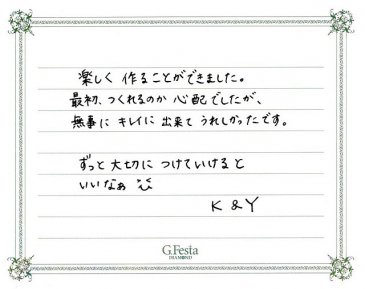 楽しく 作ることができました。
最初、つくれるのか 心配でしたが、
無事に キレイに 出来て うれしかったです。
ずっと 大切に つけていけると
いいなぁ
K & Y
G.Festa
DIAMOND